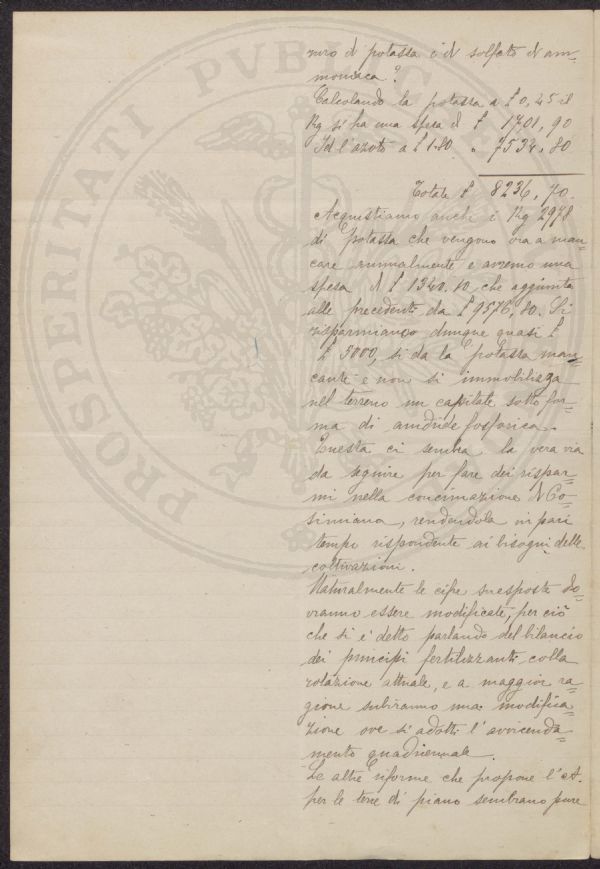 PROSPERITATI PVBLICAE
ruro di potassa e di solfato di am=
moniaca?
Calcolando la potassa a £ 0,45 il
Kg si ha una spesa di £ 1701,90
Id l'azoto a £ 1.80 " 7534.80
Totale £ 8236,70.
Acquistiamo anche i Kg 2978
di potassa che vengono ora a man=
care annualmente e avremo una
spesa di £ 1340.10, che aggiunta
alle precedenti da £ 9576,80. Si
risparmiano dunque quasi £
£ 3000, si da la potassa man=
cante e non si immobilizza
nel terreno un capitale sotto for=
ma di anidride fosforica.
Questa ci sembra la vera via
da seguire per fare dei rispar=
mi nella concimazione di Co=
simiana, rendendola in pari
tempo rispondente ai bisogni delle
coltivazioni.
Naturalmente le cifre suesposte do=
vranno essere modificate, per ciò
che si è detto parlando del bilancio
dei principi fertilizzanti colla
rotazione attuale, e a maggior ra=
gione subiranno una modifica=
zione ove si adotti l'avvicenda=
mento quadriennale.
Le altre riforme che propone l'A.
per le terre di piano sembrano pure